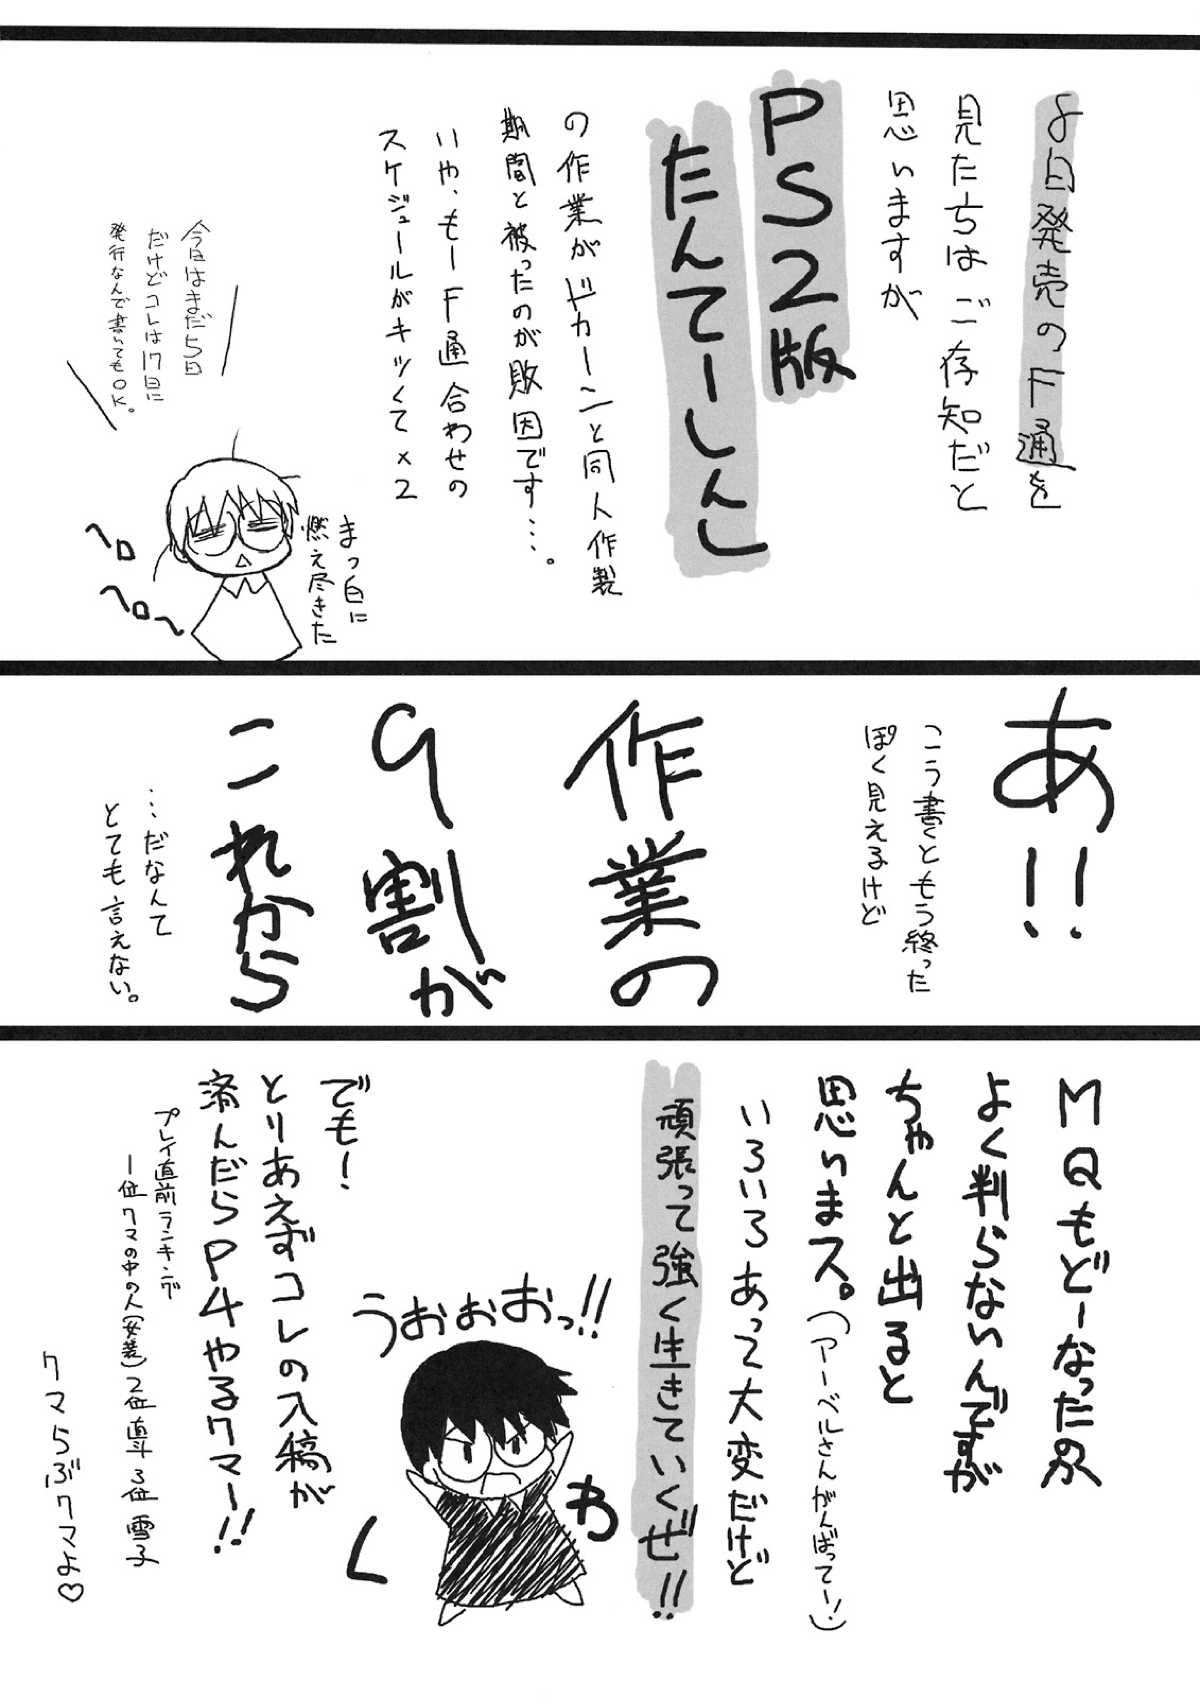 日発売のF通を
見た方はご存知だと
思いますが
PS2版
たんてーしんし
の作業がドカーンと同人作製
期間と被ったのが敗因です…。
いや、もーF通合わせの
スケジュールがキツくて×2
まっ白に
燃え尽きた
今日はまだ5日
だけどコレは17日に
発行なんで書いてもOK。
へロ
へロ〜
あ!!
こう書くともう終った
ぽく見えるけど
作業の
9割が
これから
…だなんて
とても言えない。
MQもどーなったのか
よく判らないんですが
ちゃんと出ると
思いまス。(アーベルさんがんばってー!)
いろいろあって大変だけど
頑張って強く生きていくぜ!!
うおぉぉおっ!!
わ
く
でも!
とりあえずコレの入稿が
済んだらP4やるクマー!!
プレイ直前ランキング
一位クマの中の人(女装)2位直斗3位雪子
クマらぶクマよ♡